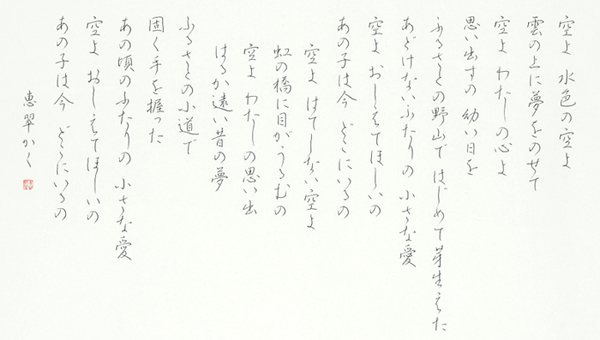 空よ 水色の空よ
雲の上に夢をのせて
空よ わたしの心よ
思い出すの 幼い日を
ふるさとの野山で はじめて芽生えた
あどけないふたりの 小さな愛
空よ おしえてほしいの
あの子は今 どこにいるの
空よ はてしない空よ
虹の橋に目がうるむの
空よ わたしの思い出
はるか遠い昔の夢
ふるさとの小道で
固く手を握った
あの頃のふたりの 小さな愛
空よ おしえてほしいの
あの子は今 どこにいるの
恵翠かく